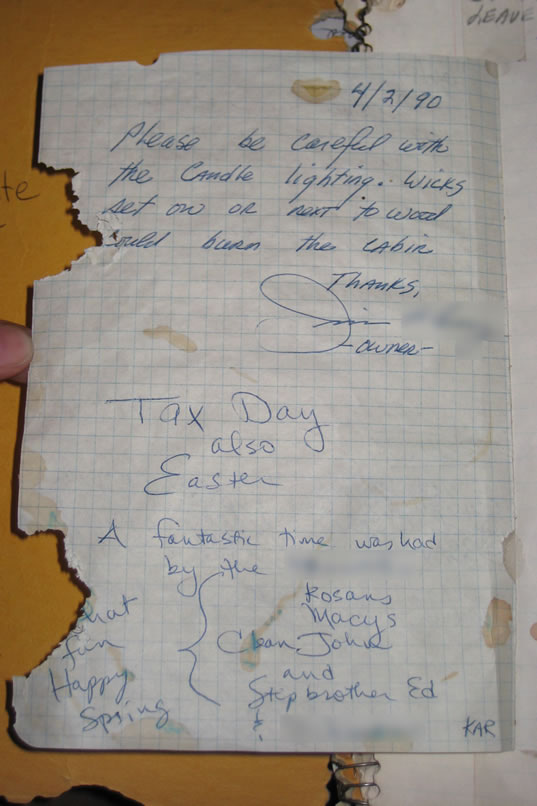 LEAVE
4/2/90
Please be careful with
the Candle lighting. Wicks
set on or next to wood
could burn the cabin
THANKS,
Jim
-owner-
Tax Day
also
Easter
A fantastic time was had
by the
Rosans
Macys
John
and
Step brother Ed
&
what
fun
Happy
Spring
KAR